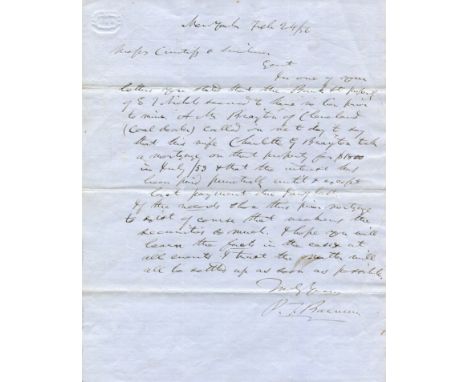 New York Feb 24/56
Messrs &
Gent
In one of your
letters you stated that the property
of E. seemed to have no lien prior
to mine. A Mr Brayton of Cleveland
(Coal dealer) called on me to day to say
that his wife Charlotte G Brayton took
a mortgage on that property for $1800
in July /53 & that the interest has
been paid punctually until & except
last payment due Jany last
If the records show this prior mortgage
to exist of course that weakens the
securities so much. I hope you will
learn the facts in the case & at
all events I trust the matter will
all be settled up as soon as possible
Truly Yours
P. T. Barnum